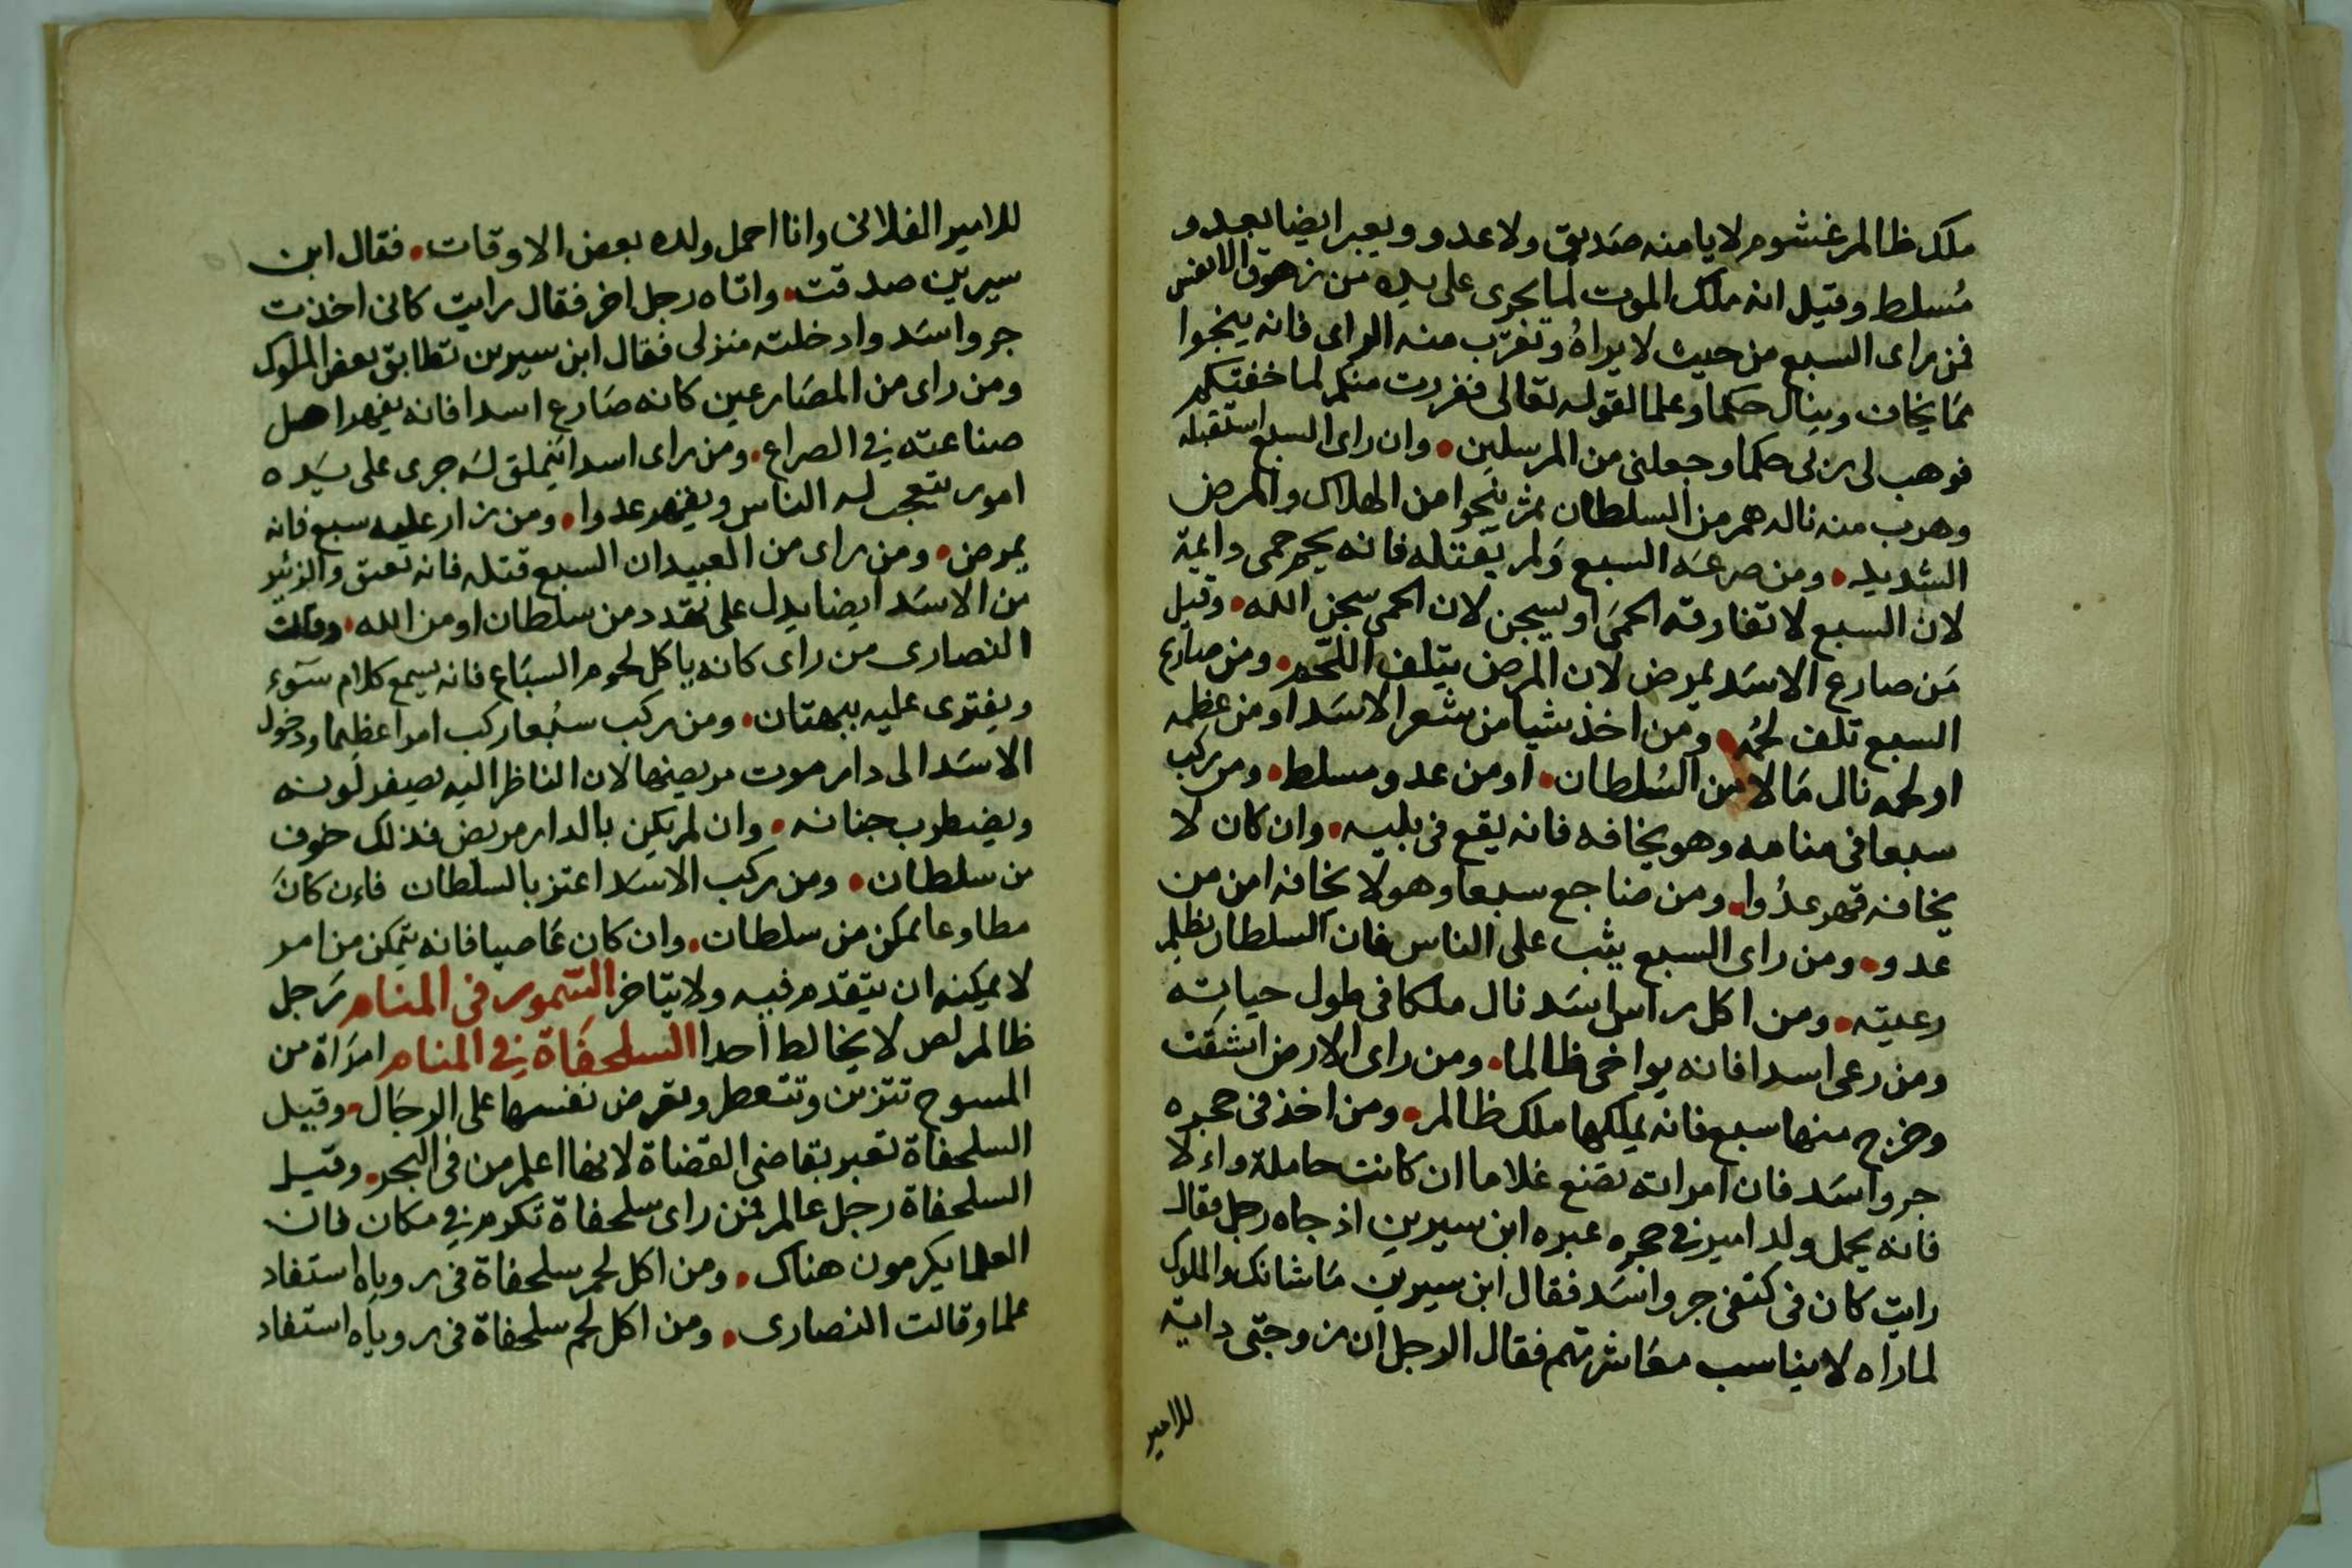 ملك ظالم غشوم لا يامنه صديق ولا عدو ويعبر ايضا بعدو
مُسلط وقيل انه ملك الموت لما يجرى على يده من زهوق الانفس
فمن راى السبع من حيث لا يراهُ وتغرّب منه الراى فانه ينجوا
مما يخاف وينال حكما وعلما لقوله تعالى ففررت منكم لما خفتكم
فوهب لى ربى حكما وجعلنى من المرسلين • وان راى السبع استقبله
وهرب منه ناله هم من السلطان ثم ينجوا من الهلاك والمرض
الشديد • ومن صرعه السبع ولم يقتله فانه يحم حمى دائمة
لان السبع لا تفارقه الحمى او يسجن لان الحمى سجن الله • وقيل
من صارع الاسد يمرض لان المرض يتلف اللّحم • ومن صارع
السبع تلف لحمُه • ومن اخذ شيا من شعر الاسد او من عظمه
او لحمه نال مالا من السُلطان • او من عدو مسلط • ومن ركب
سبعا فى منامه وهو يخافه فانه يقع فى بليه • وان كان لا
يخافه قهر عدُوا • ومن ضاجع سبعا وهو لا يخافه امن من
عدو • ومن راى السبع يثب على الناس فان السلطان يظلم
رعيته • ومن اكل راس اسد نال ملكا فى طول حياته
ومن رعى اسدا فانه يواخى ظالما • ومن راى الارض انشقت
وخرج منها سبع فانه يملكها ملك ظالم • ومن اخذ فى حجره
جرو اسد فان امراته تضع غلاما ان كانت حاملة واءلا
فانه يحمل ولد امير فى حجره عبره ابن سيرين اذ جاه رجل فقال
رايت كان فى كتفى جرو اسد فقال ابن سيرين ما شانك والملوك
لما راه لا يناسب معاشرتهم فقال الرجل ان زوجتى داية
للامير
للامير الفلانى وانا احمل ولده بعض الاوقات • فقال ابن
سيرين صدقت • واتاه رجل اخر فقال رايت كانى اخذت
جرو اسد وادخلته منزلى فقال ابن سيرين تطابق بعض الملوك
ومن راى من المصارعين كانه صَارع اسدا فانه يقهر اهل
صناعته فى الصراع • ومن راى اسدا يتملق له جرى على يَده
امور يتعجب له الناس ويقهر عدوا • ومن زار عليه سبع فانه
يمرض • ومن راى من العبيد ان السبع قتله فانه تعتق والزئير
من الاسد ايضا يدل على تهدد من سلطان او من الله • وقالت
النصارى من راى كانه ياكل لحوم السبَاع فانه يسمع كلام سَوء
ويفترى عليه ببهتان • ومن ركب سبُعا ركب امرا عظيما ودخول
الاسَد الى دار موت مريضها لان الناظر اليه يصفر لَونه
ويضطرب جنانه • وان لم يكن بالدار مريض فذلك خوف
من سلطان • ومن ركب الاسد اعتز بالسلطان فاءن كانَ
مطاوعا تمكن من سلطان • وان كان عاصيا فانه يتمكن من امر
لا يمكنه ان يتقدم فيه ولا يتاخر السّمور فى المنام رَجل
ظالم لص لا يخالط احدا السلحفَاة فى المنام امرَاة من
المسوح تتزين وتتعطر وتعرض نفسها على الرجَال • وقيل
السلحفاة تعبر بقاضى القضاة لانها اعلم من فى البحر • وقيل
السلحفاة رجل عالم فمن راى سلحفاة تكوم فى مكان فان
العلما يكرمون هناك • ومن اكل لحم سلحفاة فى روياه استفاد
علما وقالت النصارى • ومن اكل لحم سلحفاة فى روياه استفاد